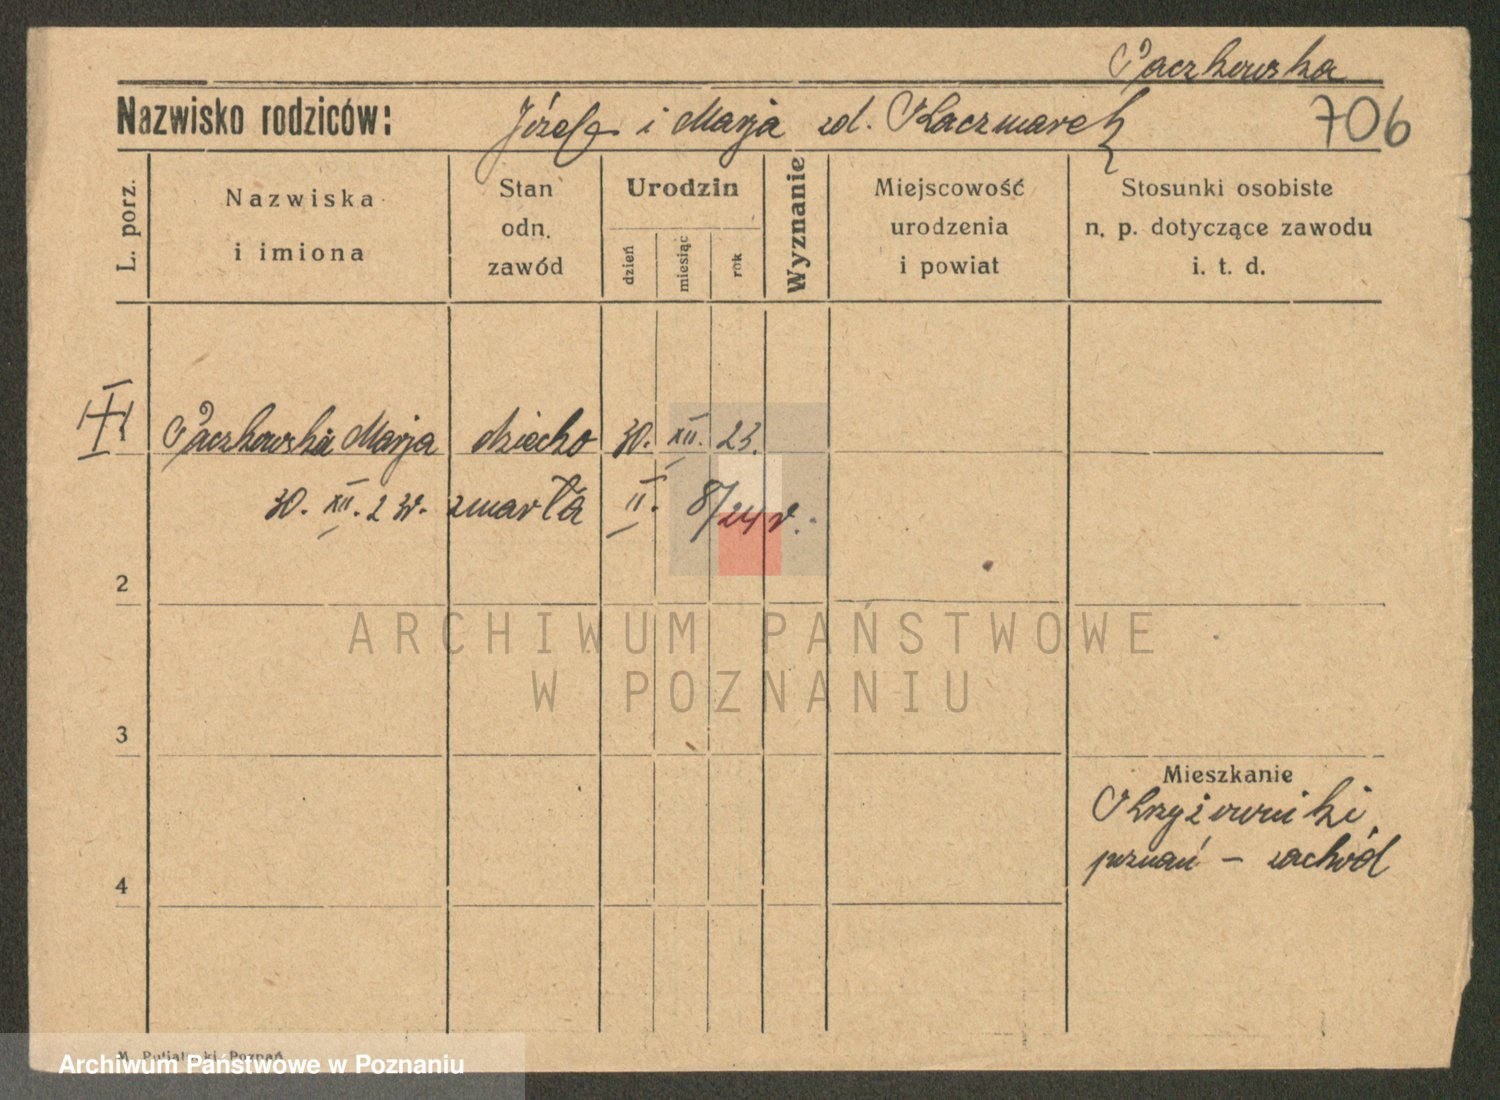 Paczkowska
Nazwisko rodziców: Józef i Marja zd. Kaczmarek 706
L. porz.
Nazwiska
i imiona
Stan
odn.
zawód
Urodzin
dzień
miesiąc
rok
Wyznanie
Miejscowość
urodzenia
i powiat
Stosunki osobiste
n. p. dotyczące zawodu
i. t. d.
Paczkowska Marja dziecko 30. XII. 23.
30. XII. 23r. zmarła II. 8/24 r.
2
ARCHIWUM PAŃSTWOWE
W POZNANIU
3
Mieszkanie
Krzyżowniki
poznań - zachód
4
Archiwum Państwowe w Poznaniu